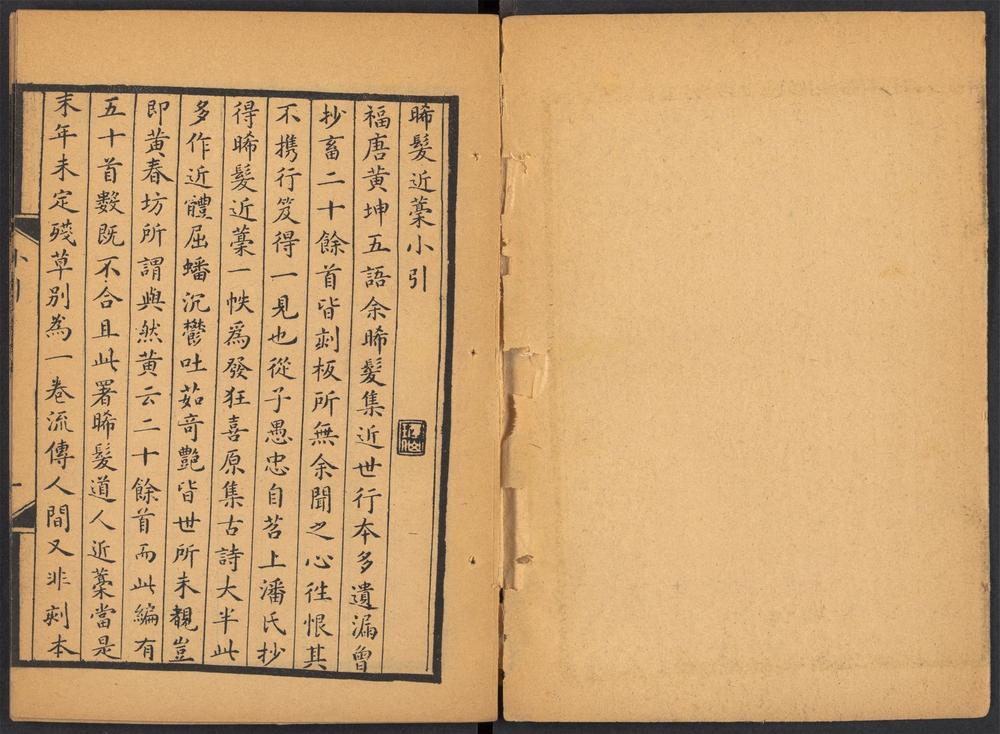 晞髮近藁小引
福唐黄坤五語余晞髮集近世行本多遺漏曾
抄畜二十餘首皆刻板所無余聞之心徃恨其
不携行笈得一見也從子愚忠自苕上潘氏抄
得晞髮近藁一帙爲發狂喜原集古詩大半此
多作近體屈蟠沉鬱吐茹奇艷皆世所未覩豈
即黄春坊所謂與然黄云二十餘首而此編有
五十首數既不合且此署晞髮道人近藁當是
末年未定殘草别為一卷流傳人間又非刻本